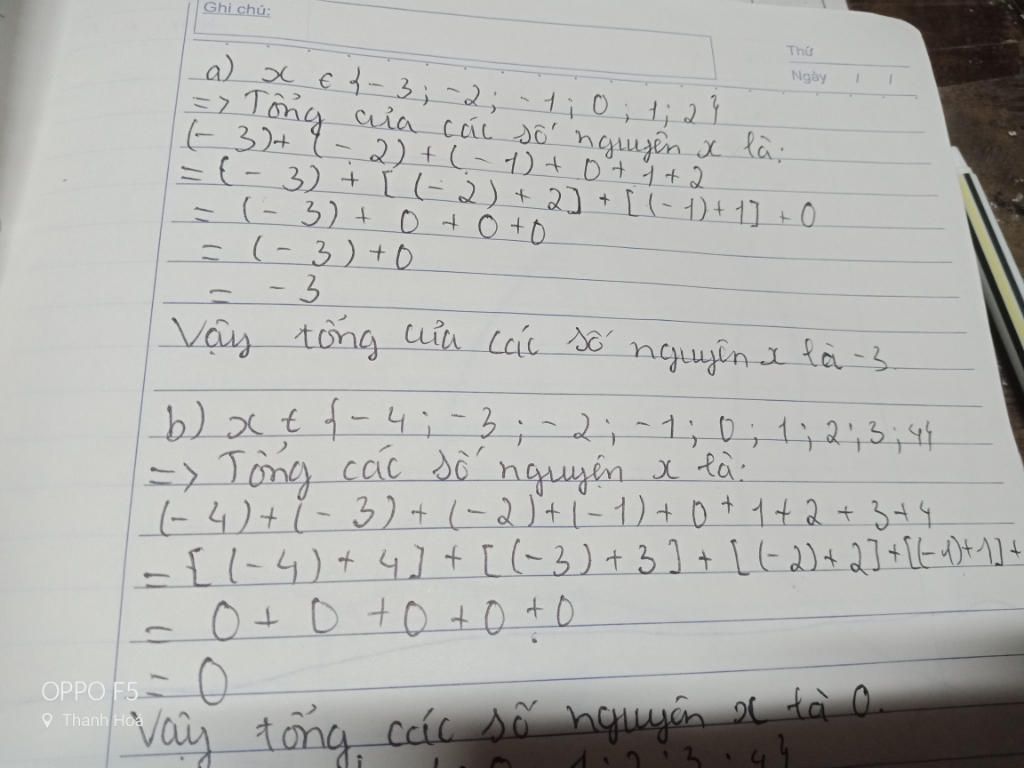 Ghi chú:
Thứ
Ngày / /
a) x ∈ {-3; -2; -1; 0; 1; 2}
=> Tổng của các số nguyên x là:
(-3)+(-2)+(-1)+0+1+2
= (-3) + [(-2)+2] + [(-1)+1] + 0
= (-3) + 0 + 0 + 0
= (-3) + 0
= -3
Vậy tổng của các số nguyên x là -3
b) x ∈ {-4; -3; -2; -1; 0; 1; 2; 3; 4}
=> Tổng các số nguyên x là:
(-4)+(-3)+(-2)+(-1)+0+1+2+3+4
= [(-4)+4] + [(-3)+3] + [(-2)+2]+[(-1)+1]+
= 0 + 0 + 0 + 0 + 0
= 0
Vậy tổng các số nguyên x là 0.
OPPO F5
Thanh Hoá